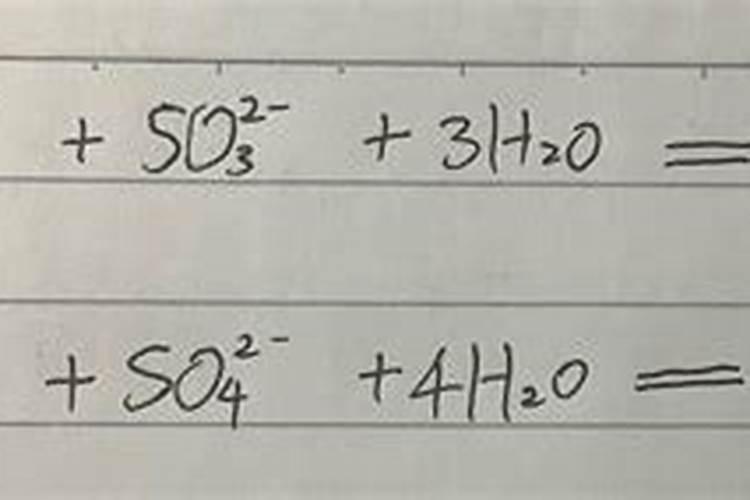 + SO₃²⁻ + 3H₂O =
+ SO₄²⁻ + 4H₂O =